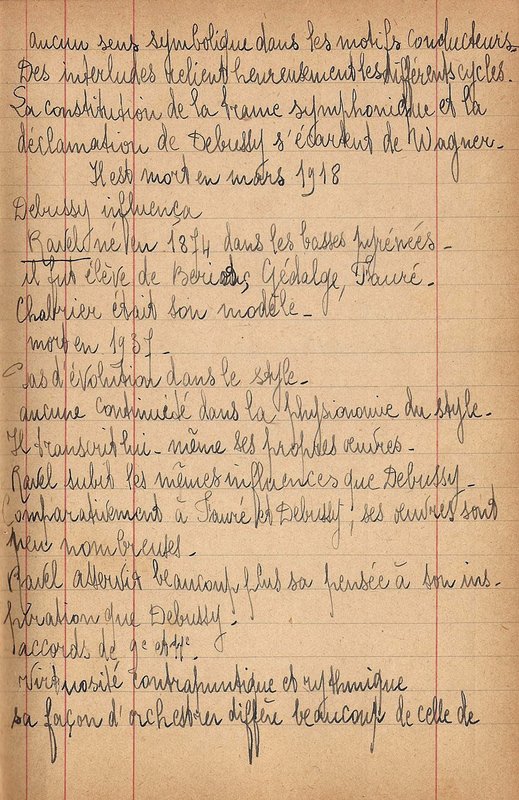 aucun sens symbolique dans les motifs conducteurs_
Des interludes relient heureusement les différents cycles.
La constitution de la trame symphonique et la
déclamation de Debussy s'écartent de Wagner_
Il est mort en mars 1918
Debussy influença
Ravel né en 1874 dans les basses pyrénées_
il fut élève de Gédalge, Fauré_
Chabrier était son modèle_
mort en 1937_
Pas d'évolution dans le style_
aucune continuité dans la physionomie du style_
Il transcrit lui-même ses propres œuvres_
Ravel subit les mêmes influences que Debussy_
Comparativement à Fauré et Debussy, ses œuvres sont
peu nombreuses_
Ravel asservit beaucoup plus sa pensée à son ins-
piration que Debussy_
accords de 9e et 11e_
Virtuosité contrapuntique et rythmique
sa façon d'orchestrer diffère beaucoup de celle de